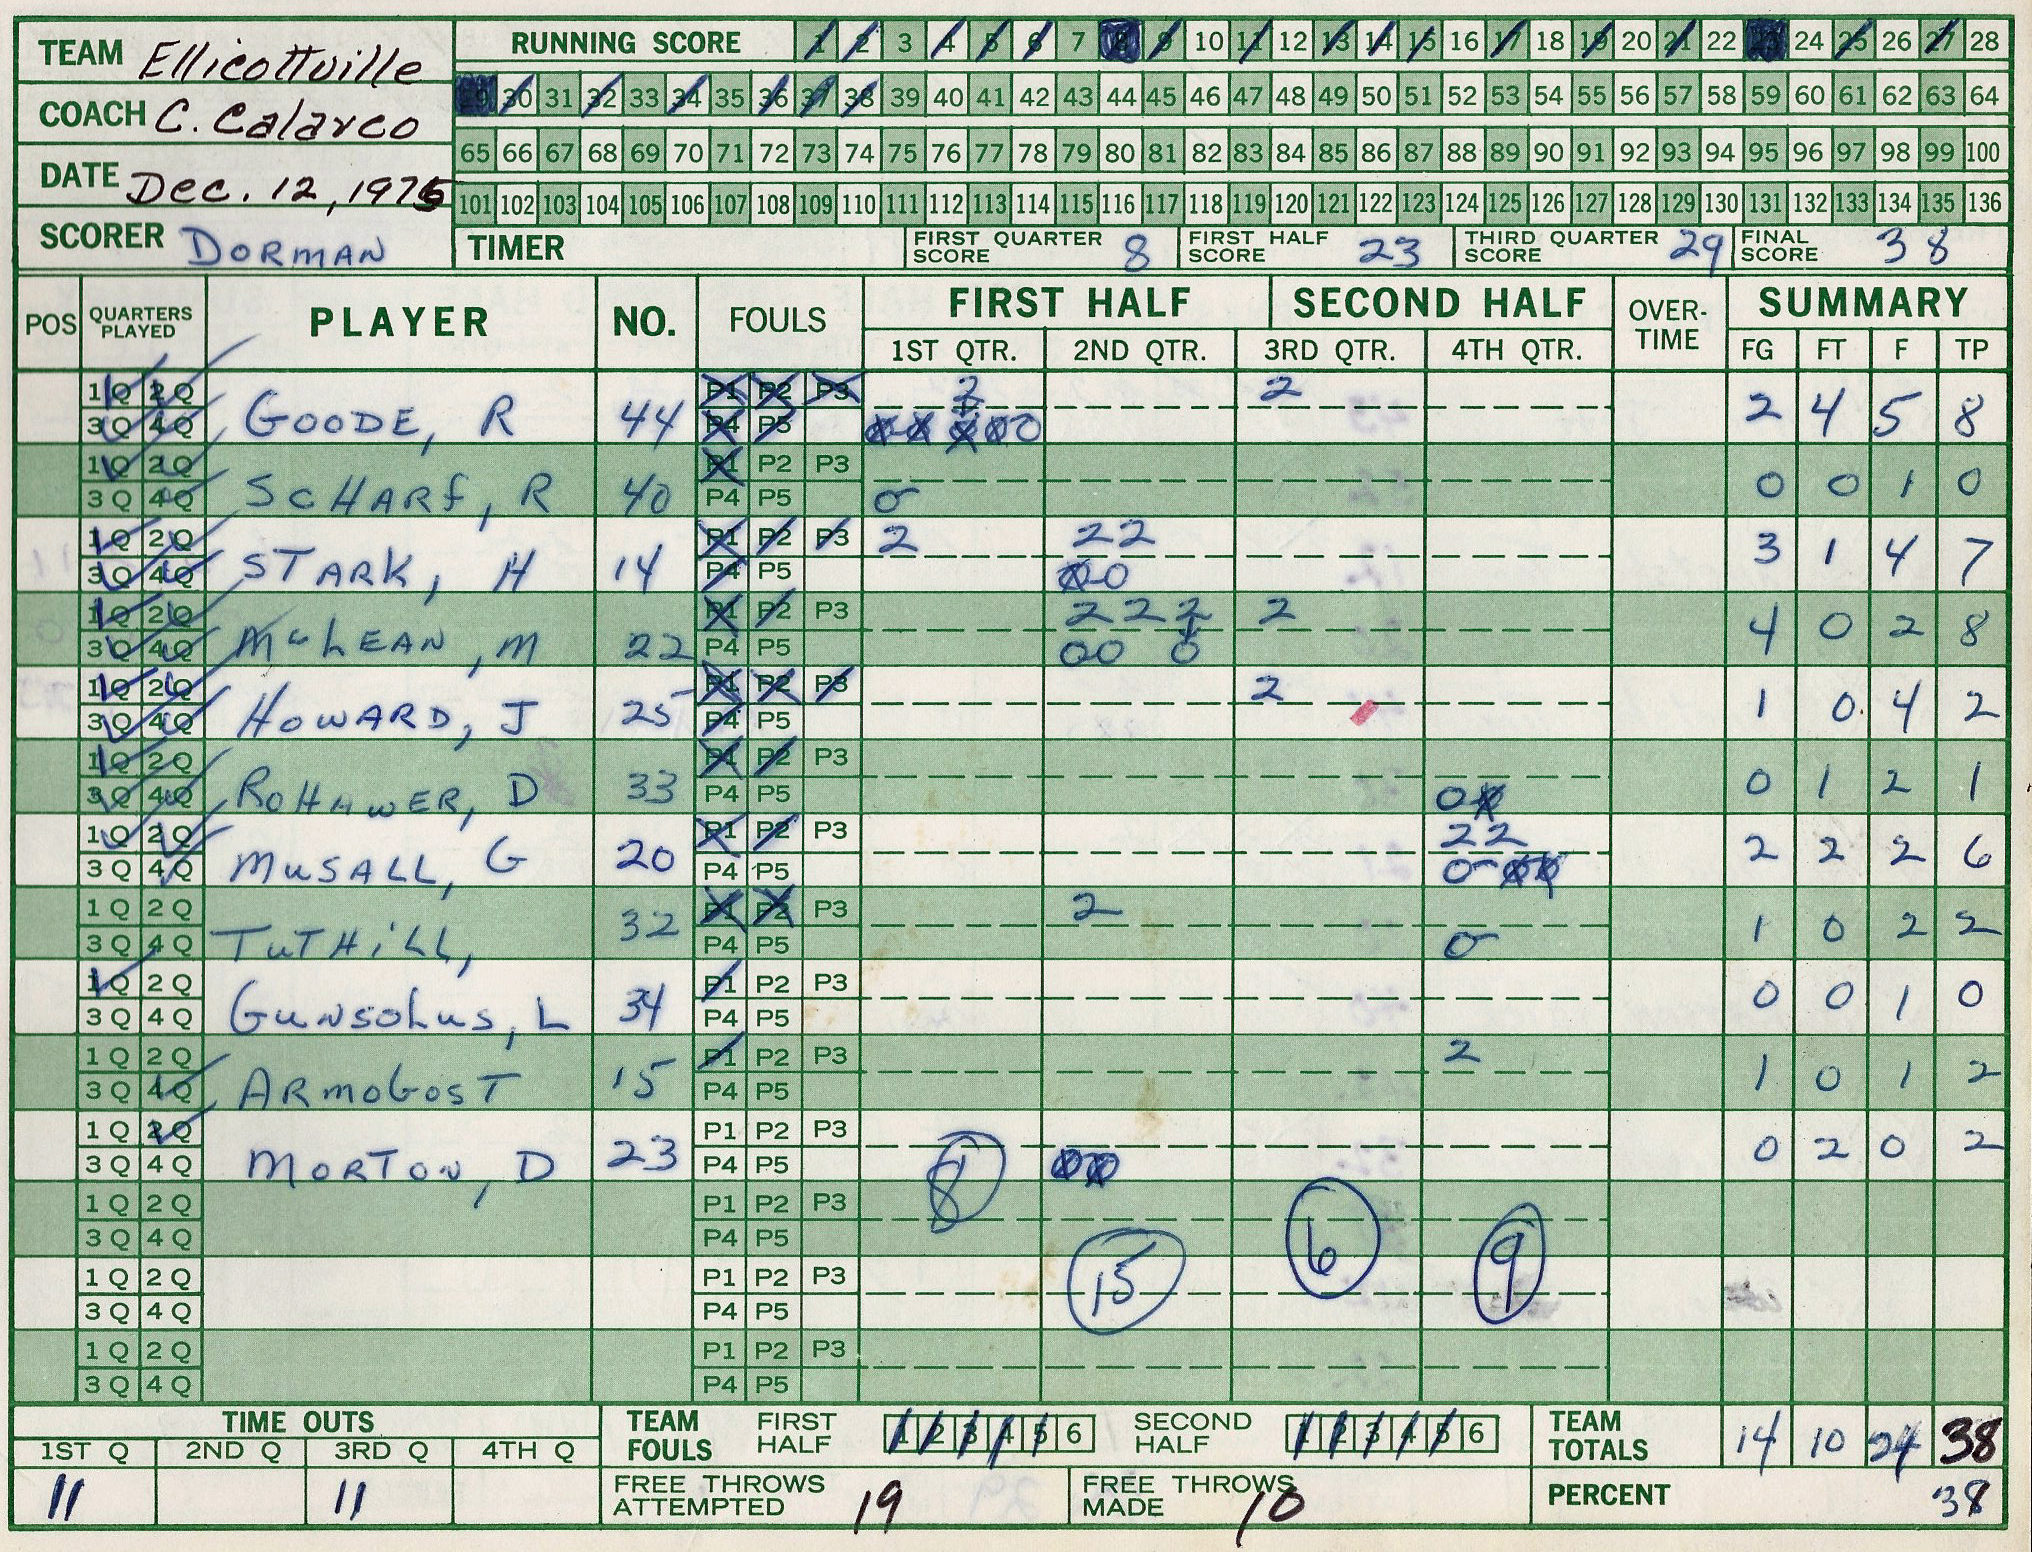 TEAM Ellicottville
RUNNING SCORE 1 2 3 4 5 6 7 8 9 10 11 12 13 14 15 16 17 18 19 20 21 22 23 24 25 26 27 28
COACH C. Calarco
29 30 31 32 33 34 35 36 37 38 39 40 41 42 43 44 45 46 47 48 49 50 51 52 53 54 55 56 57 58 59 60 61 62 63 64
65 66 67 68 69 70 71 72 73 74 75 76 77 78 79 80 81 82 83 84 85 86 87 88 89 90 91 92 93 94 95 96 97 98 99 100
DATE Dec. 12, 1975
101 102 103 104 105 106 107 108 109 110 111 112 113 114 115 116 117 118 119 120 121 122 123 124 125 126 127 128 129 130 131 132 133 134 135 136
SCORER DORMAN
TIMER FIRST QUARTER SCORE 8 FIRST HALF SCORE 23 THIRD QUARTER SCORE 29 FINAL SCORE 38
POS QUARTERS PLAYED PLAYER NO. FOULS FIRST HALF SECOND HALF OVER-TIME SUMMARY
1ST QTR. 2ND QTR. 3RD QTR. 4TH QTR. FG FT F TP
1Q 2Q P1 P2 P3 2 2
3Q 4Q GOODE, R 44 P4 P5 2 4 5 8
1Q 2Q P1 P2 P3
3Q 4Q SCHARF, R 40 P4 P5 0 0 0 1 0
1Q 2Q P1 P2 P3 2 22
3Q 4Q STARK, H 14 P4 P5 00 3 1 4 7
1Q 2Q P1 P2 P3 2 2 2 2
3Q 4Q McLEAN, M 22 P4 P5 00 0 4 0 2 8
1Q 2Q P1 P2 P3 2
3Q 4Q HOWARD, J 25 P4 P5 1 0 4 2
1Q 2Q P1 P2 P3
3Q 4Q ROHAWER, D 33 P4 P5 00 0 1 2 1
1Q 2Q P1 P2 P3 22
3Q 4Q MUSALL, G 20 P4 P5 0 00 2 2 2 6
1Q 2Q P1 P2 P3 2
3Q 4Q TUTHILL, 32 P4 P5 0 1 0 2 2
1Q 2Q P1 P2 P3
3Q 4Q GUNSOLUS, L 34 P4 P5 0 0 1 0
1Q 2Q P1 P2 P3 2
3Q 4Q ARMOGOST 15 P4 P5 1 0 1 2
1Q 2Q P1 P2 P3
3Q 4Q MORTON, D 23 P4 P5 00 0 2 0 2
8
1Q 2Q P1 P2 P3
3Q 4Q P4 P5 6 9
1Q 2Q P1 P2 P3 15
3Q 4Q P4 P5
1Q 2Q P1 P2 P3
3Q 4Q P4 P5
TIME OUTS TEAM FOULS FIRST HALF 1 2 3 4 5 6 SECOND HALF 1 2 3 4 5 6 TEAM TOTALS 14 10 24 38
1ST Q 2ND Q 3RD Q 4TH Q
11 11 FREE THROWS ATTEMPTED 19 FREE THROWS MADE 10 PERCENT 38